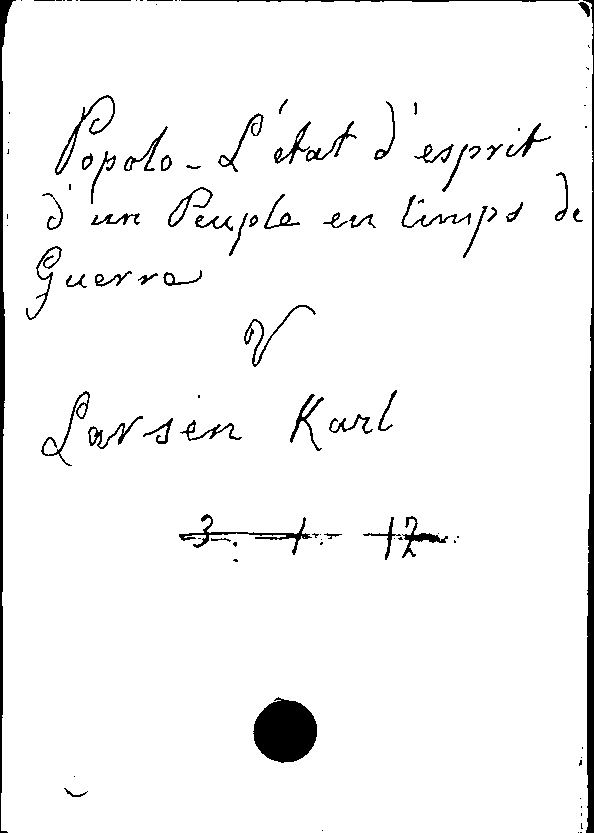 Popolo - L'état d'esprit
d'un Peuple en temps de
Guerra
V
Larsen Karl
3. 1. 12